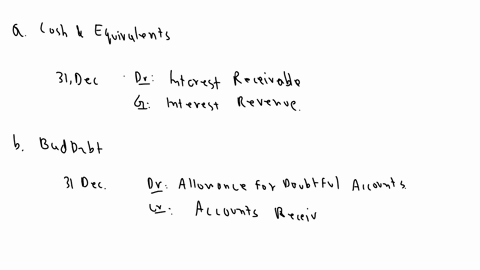 a. Cash & Equivalents
31, Dec Dr: Interest Receivable
Cr: Interest Revenue.
b. Bad Debt
31 Dec. Dr: Allowance for Doubtful Accounts.
Cr: Accounts Receiv